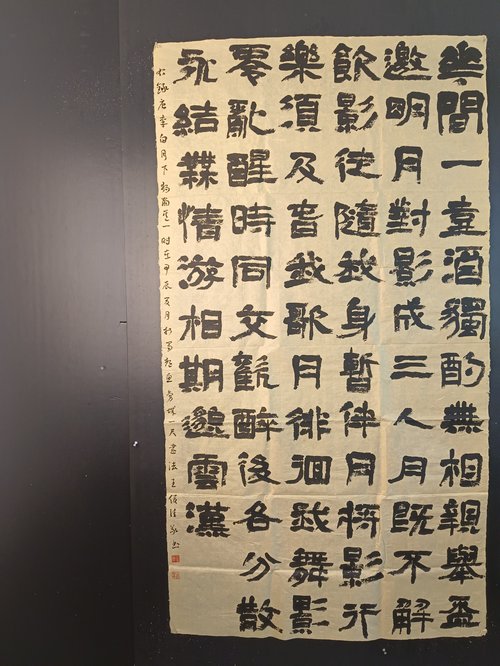 花間一壺酒獨酌無相親舉盃
邀明月對影成三人月既不解
飲影徒隨我身暫伴月將影行
樂須及音我歌月徘徊我舞影
零亂醒時同交歡醉後各分散
永結無情游相期邈雲漢
錄唐李白月下獨酌其一時在甲辰夏月於書法王書